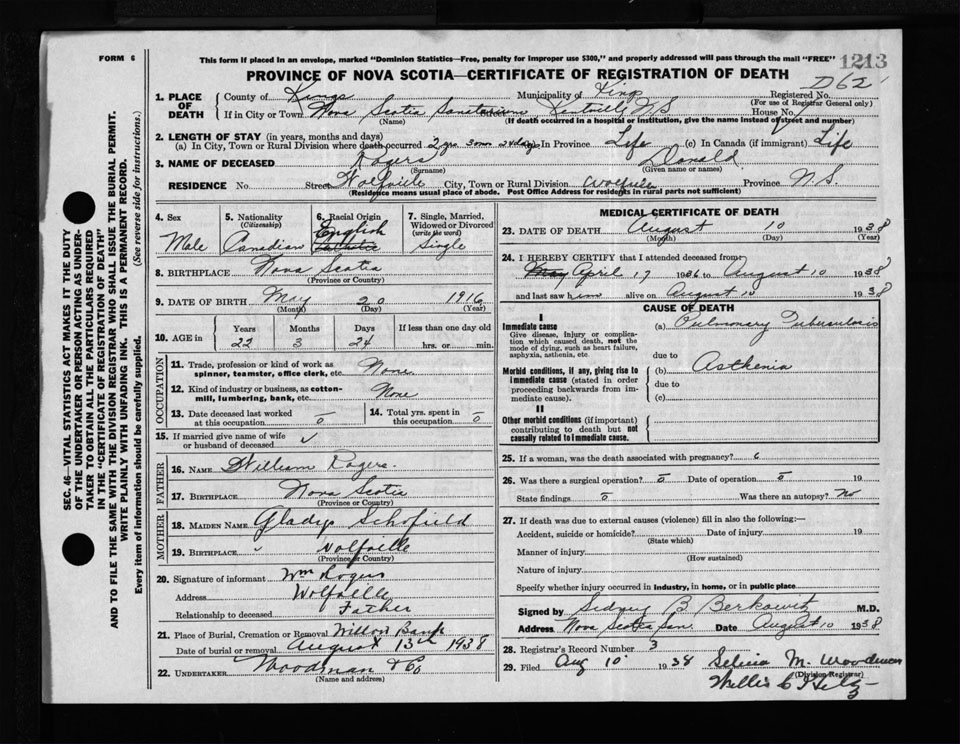 FORM 6
This form if placed in an envelope, marked "Dominion Statistics—Free, penalty for improper use $300," and properly addressed will pass through the mail "FREE"
1213
PROVINCE OF NOVA SCOTIA—CERTIFICATE OF REGISTRATION OF DEATH
D62
1. PLACE OF DEATH
County of Kings Municipality of Kings Registered No.
(For use of Registrar General only)
If in City or Town Nova Scotia Sanatorium Street Kentville N.S. House No.
(Name) (If death occurred in a hospital or institution, give the name instead of street and number)
2. LENGTH OF STAY (in years, months and days)
(a) In City, Town or Rural Division where death occurred 2 yrs 3 mon 24 days In Province Life (c) In Canada (if immigrant) Life
3. NAME OF DECEASED Rogers Donald
(Surname) (Given name or names)
RESIDENCE No. Street Wolfville City, Town or Rural Division Wolfville Province N.S.
(Residence means usual place of abode. Post Office Address for residents in rural parts not sufficient)
4. Sex
Male
5. Nationality
(Citizenship)
Canadian
6. Racial Origin
English
7. Single, Married, Widowed or Divorced
(write the word)
Single
8. BIRTHPLACE Nova Scotia
(Province or Country)
9. DATE OF BIRTH May 20 1916
(Month) (Day) (Year)
10. AGE in
Years Months Days If less than one day old
22 3 24 hrs. or min.
OCCUPATION
11. Trade, profession or kind of work as spinner, teamster, office clerk, etc. None
12. Kind of industry or business, as cotton-mill, lumbering, bank, etc. None
13. Date deceased last worked at this occupation 0
14. Total yrs. spent in this occupation 0
15. If married give name of wife or husband of deceased
FATHER
16. NAME William Rogers.
17. BIRTHPLACE Nova Scotia
(Province or Country)
MOTHER
18. MAIDEN NAME Gladys Schofield
19. BIRTHPLACE " Wolfville
(Province or Country)
20. Signature of informant Wm Rogers
Address Wolfville
Relationship to deceased Father
21. Place of Burial, Cremation or Removal Willow Bank
Date of burial or removal August 13th 1938
22. UNDERTAKER Woodman & Co
(Name and address)
MEDICAL CERTIFICATE OF DEATH
23. DATE OF DEATH August 10 1938
(Month) (Day) (Year)
24. I HEREBY CERTIFY that I attended deceased from
May April 17 1936 to August 10 1938
and last saw him alive on August 10 1938
CAUSE OF DEATH
I
Immediate cause
Give disease, injury or complication which caused death, not the mode of dying, such as heart failure, asphyxia, asthenia, etc
(a) Pulmonary Tuberculosis
due to
Morbid conditions, if any, giving rise to immediate cause (stated in order proceeding backwards from immediate cause).
(b) Asthenia
due to
(c)
II
Other morbid conditions (if important) contributing to death but not causally related to immediate cause.
25. If a woman, was the death associated with pregnancy?
26. Was there a surgical operation? 0 Date of operation 0 19
State findings 0 Was there an autopsy? No
27. If death was due to external causes (violence) fill in also the following:—
Accident, suicide or homicide? Date of injury 19
(State which)
Manner of injury
(How sustained)
Nature of injury
Specify whether injury occurred in industry, in home, or in public place
Signed by Sidney B Berkowitz M.D.
Address Nova Scotia San. Date August 10 1938
28. Registrar's Record Number 3
29. Filed Aug 10 1938 Selina M. Woodman
(Division Registrar)
Willis C
SEC. 46—VITAL STATISTICS ACT MAKES IT THE DUTY
OF THE UNDERTAKER OR PERSON ACTING AS UNDER-
TAKER TO OBTAIN ALL THE PARTICULARS REQUIRED
IN THE "CERTIFICATE OF REGISTRATION OF DEATH"
AND TO FILE THE SAME WITH THE DIVISION REGISTRAR WHO SHALL ISSUE THE BURIAL PERMIT.
WRITE PLAINLY WITH UNFADING INK. THIS IS A PERMANENT RECORD.
Every item of information should be carefully supplied. (See reverse side for instructions.)